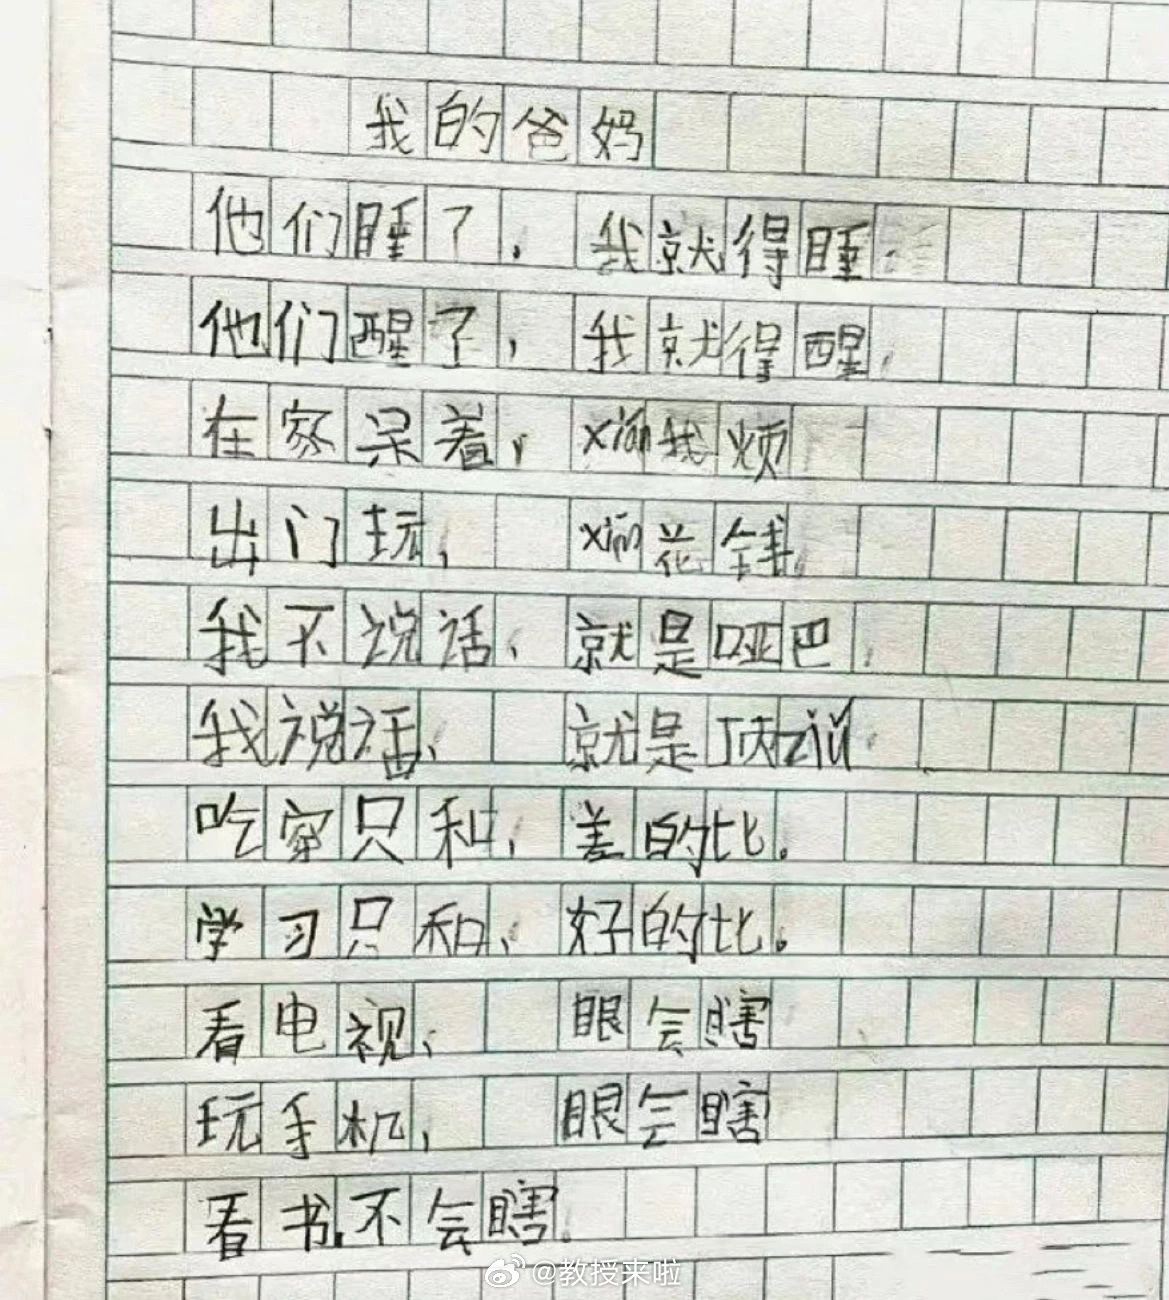 我的爸妈
他们睡了，我就得睡.
他们醒了，我就得醒.
在家呆着，xián我烦
出门玩，xián花钱.
我不说话，就是哑巴.
我说话，就是顶zuǐ.
吃穿只和，差的比。
学习只和，好的比。
看电视，眼会瞎
玩手机，眼会瞎
看书不会瞎.
@教授来啦